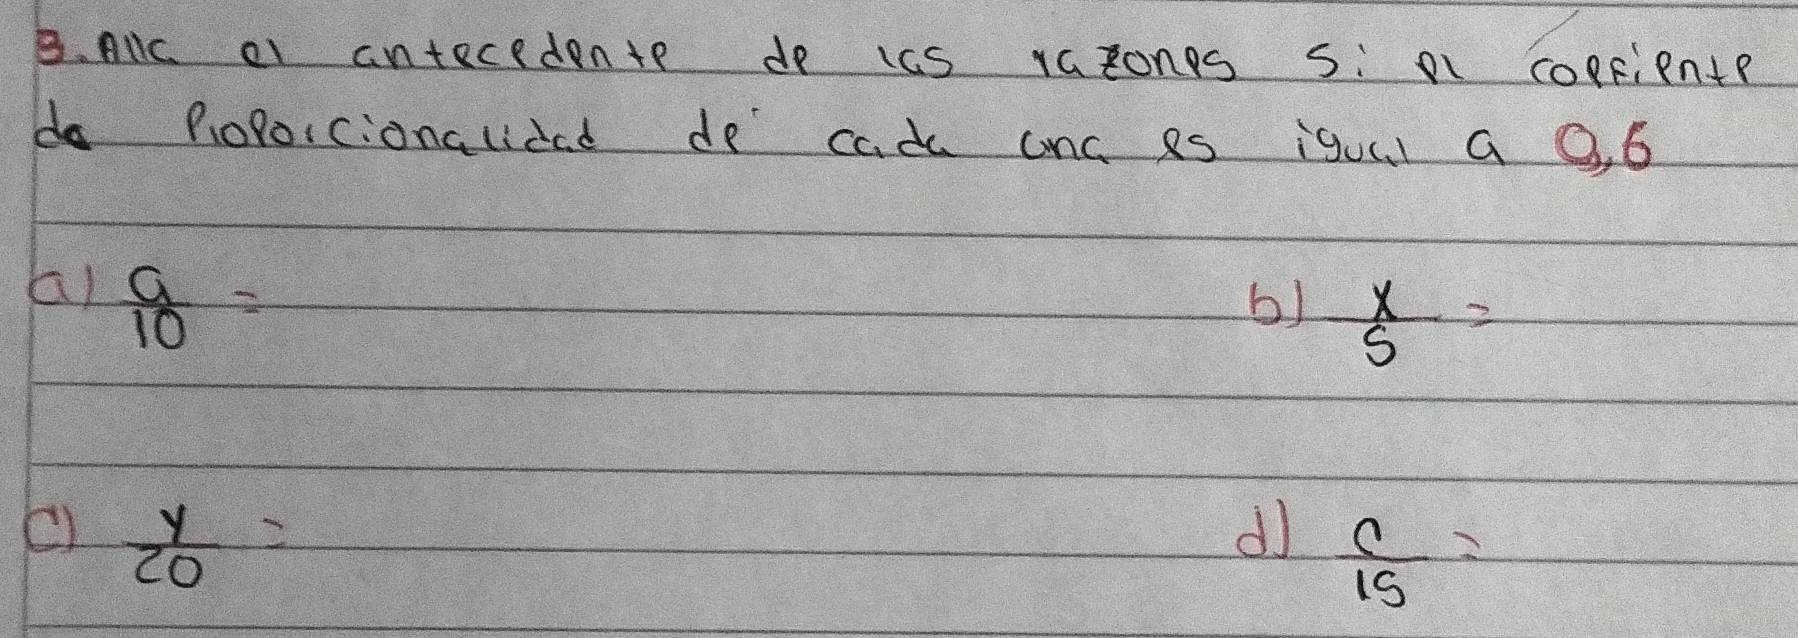 3. Alla el antecedente de las razones si el coefiente
de Proporcionalidad de cada una es igual a 0,6
a) a/10 =
b) x/5 =
c) y/20 =
d) c/15 =